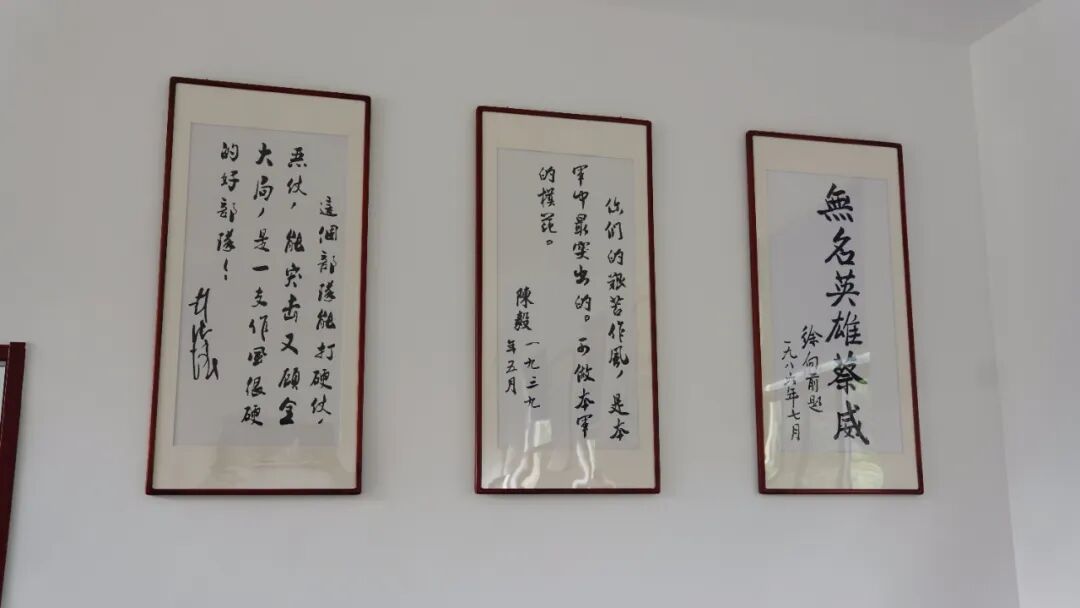 這個部隊能打硬仗，
恶仗，能突击又顾全
大局，是一支作风很硬
的好部隊！
你们的艰苦作風，是本
军中最突出的。可做本军
的模范。
陳毅 一九三九
年五月
無名英雄蔡威
徐向前题
一九八六年七月